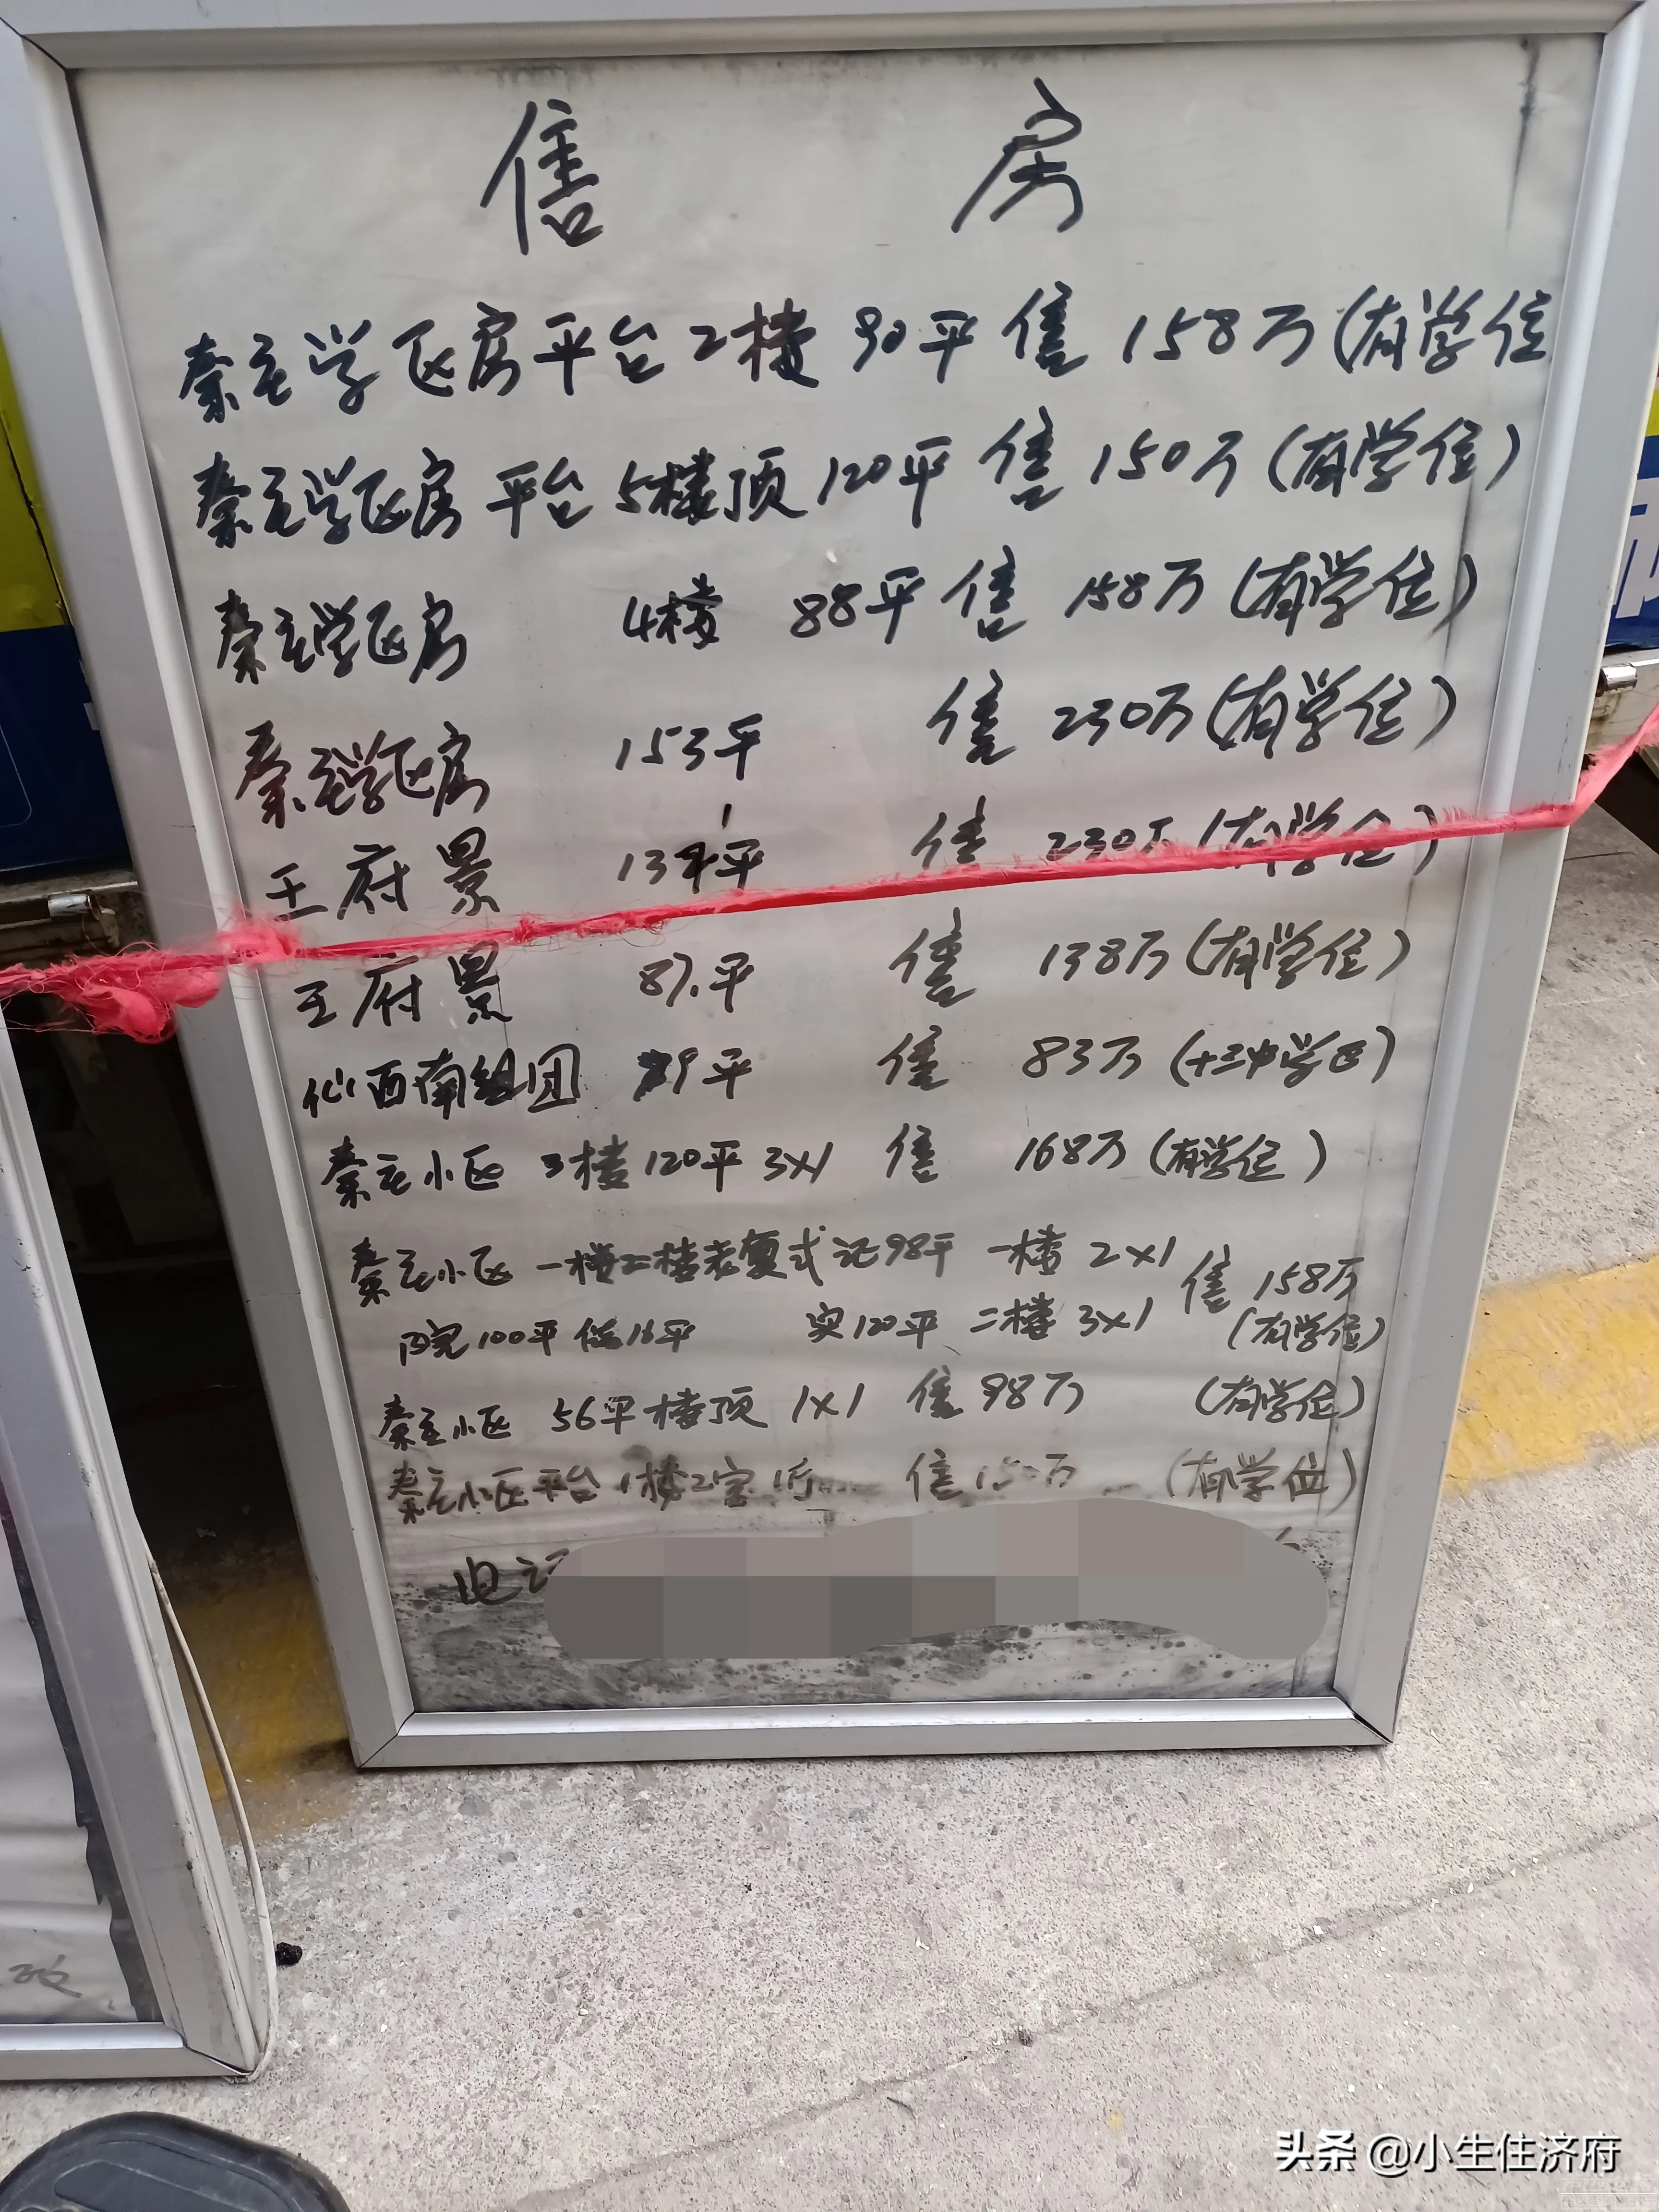 售 房
秦庄学区房平台2楼 90平 售 158万(有学位
秦庄学区房 平台 5楼顶 120平 售 150万(有学位)
秦庄学区房 4楼 88平 售 158万(有学位)
秦庄学区房 153平 售 230万(有学位)
王府景 137平 售 230万(有学位)
王府景 87.平 售 138万(有学位)
仙西南组团 89平 售 83万(十三中学区)
秦庄小区 3楼 120平 3×1 售 168万(有学位)
秦庄小区 一楼二楼老复式证98平 一楼 2×1 售 158万
内院100平 储16平 实120平 二楼 3×1 (有学位)
秦庄小区 56平 楼顶 1×1 售 98万 (有学位)
秦庄小区平台 1楼2室1厅 售 万 (有学位)
电
头条 @小生住济府